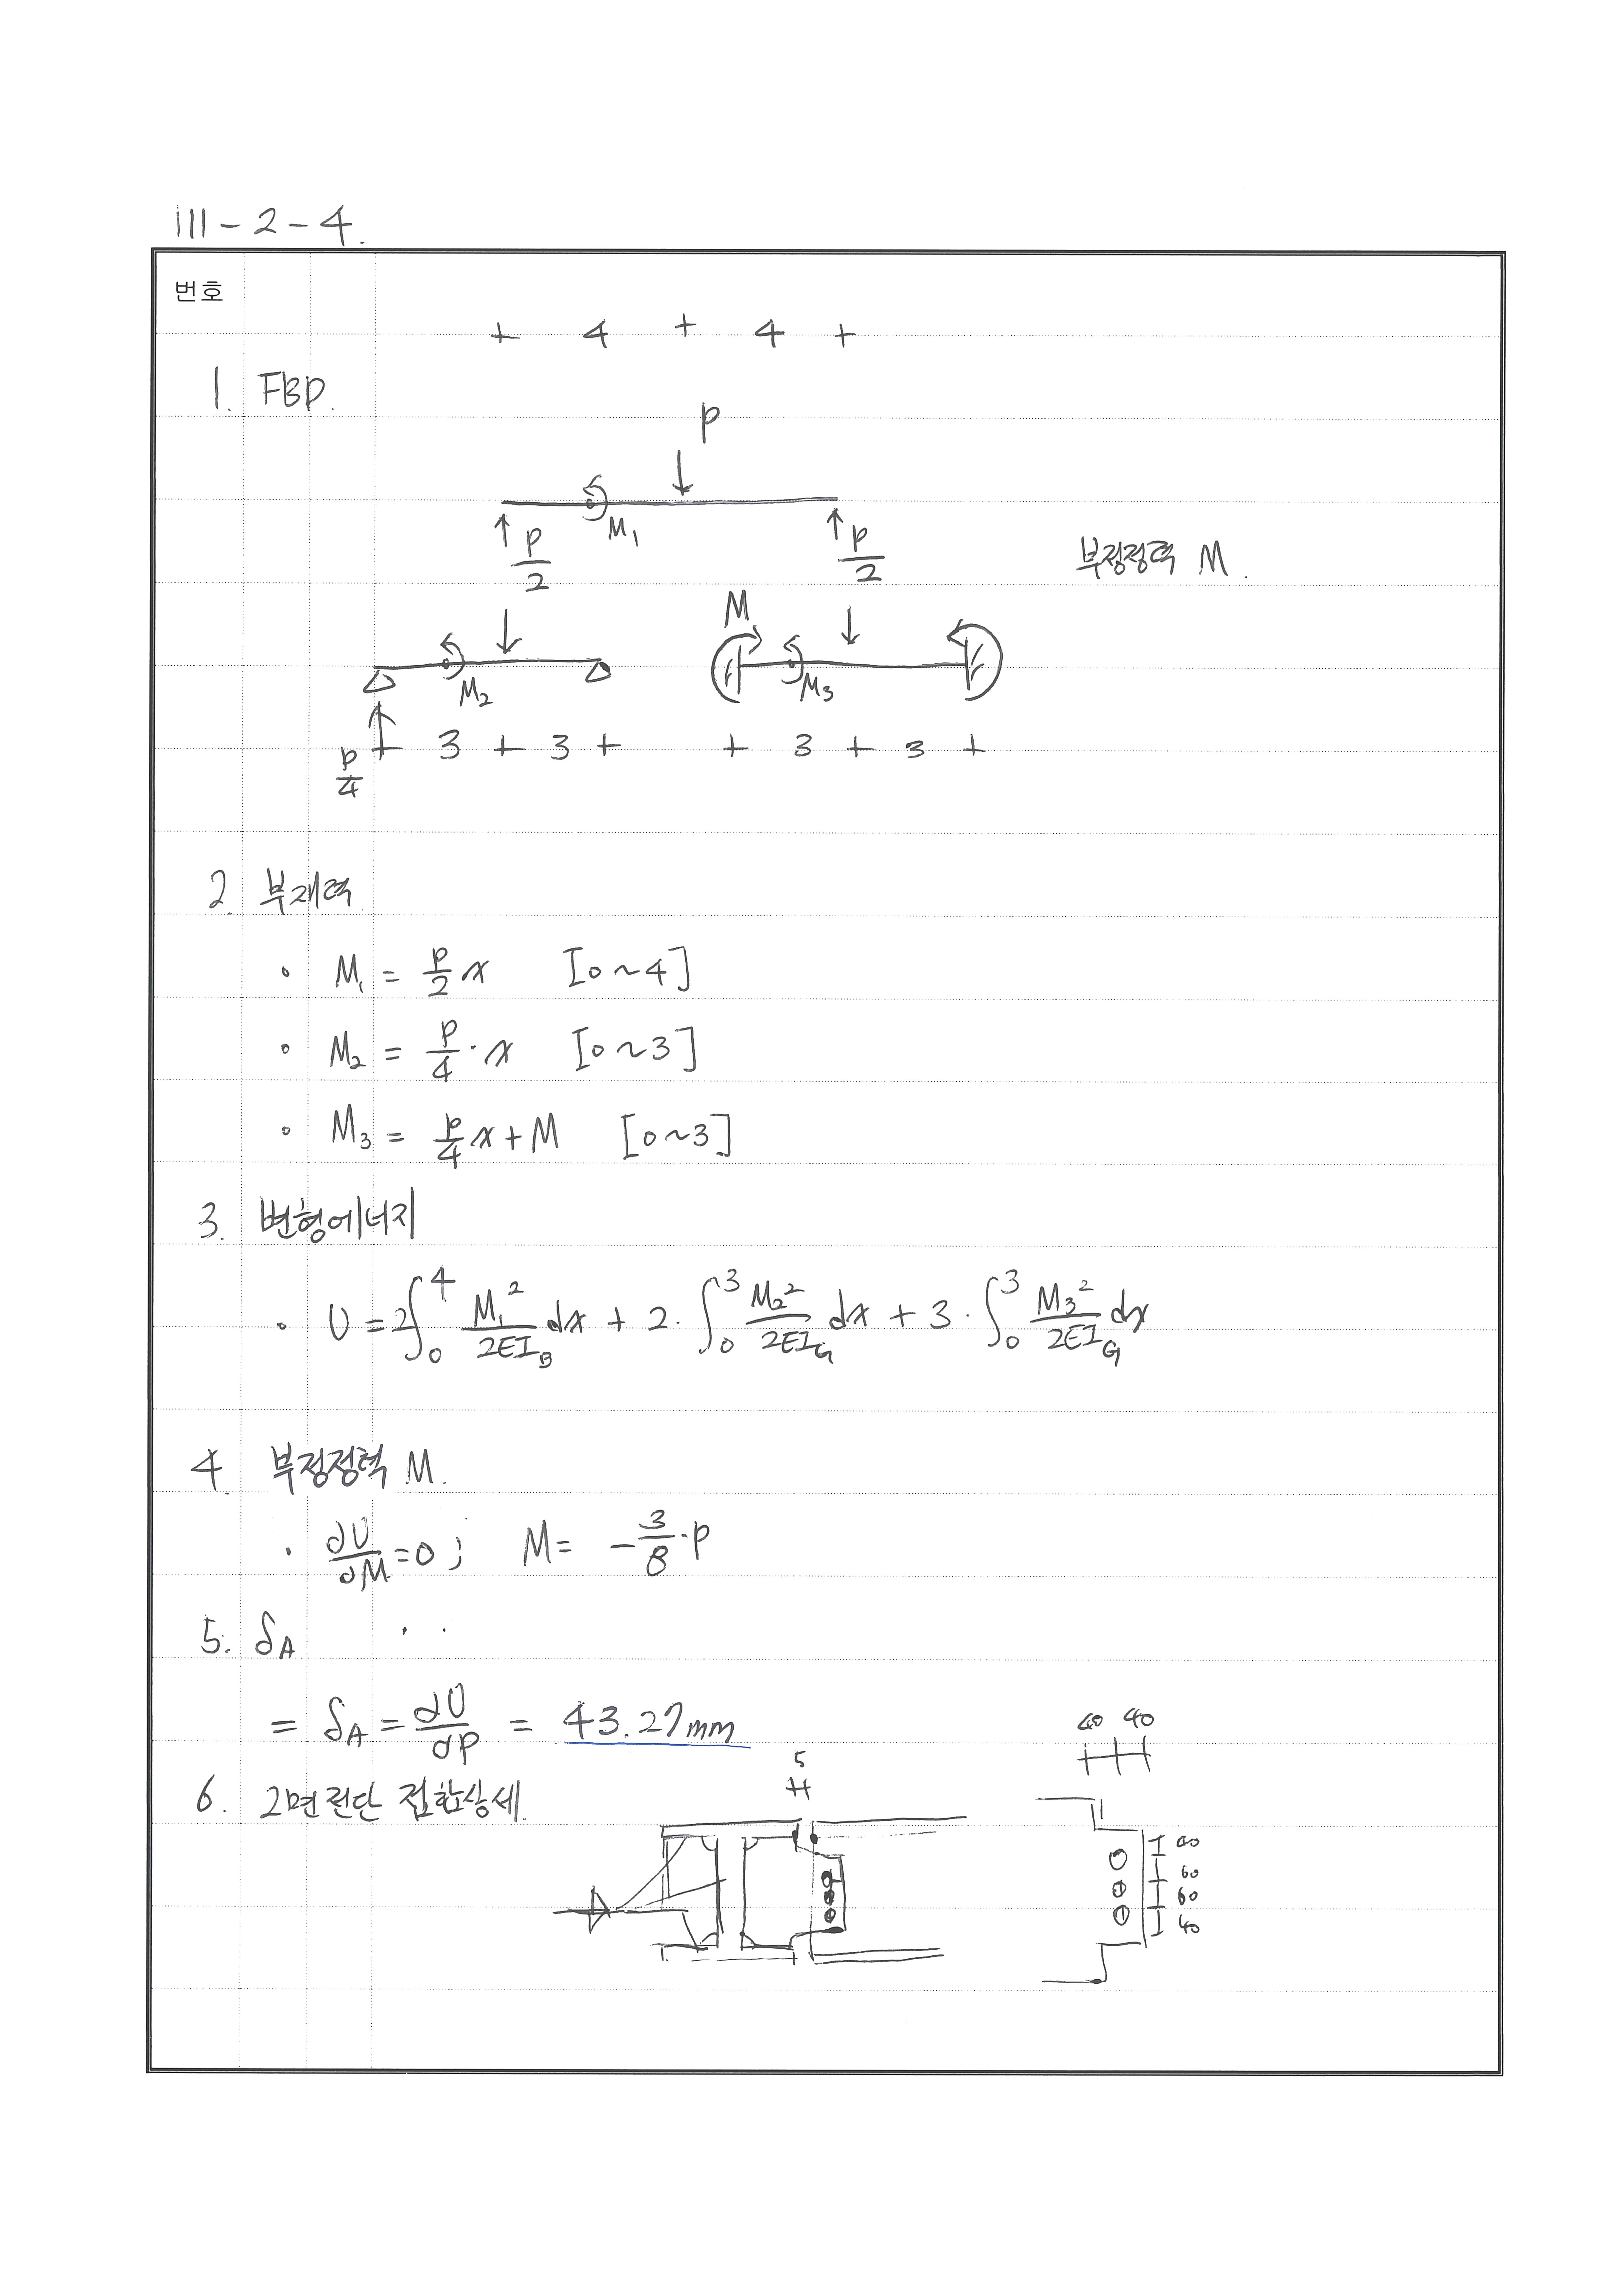 111-2-4.
번호
+ 4 + 4 +
1. FBD.
P
M₁
P/2
P/2
부정정력 M.
M
M₂
M₃
P/4
+ 3 + 3 +
+ 3 + 3 +
2. 부재력
• M₁ = P/2 x [0~4]
• M₂ = P/4 · x [0~3]
• M₃ = P/4 x + M [0~3]
3. 변형에너지
• U = 2∫₀⁴ M₁²/2EI_B dx + 2·∫₀³ M₂²/2EI_G dx + 3·∫₀³ M₃²/2EI_G dx
4. 부정정력 M.
• ∂U/∂M = 0 ; M = -3/8 · P
5. δ_A
= δ_A = ∂U/∂P = 43.27mm
6. 2면전단 접합상세.
5
40 40
40
60
60
40